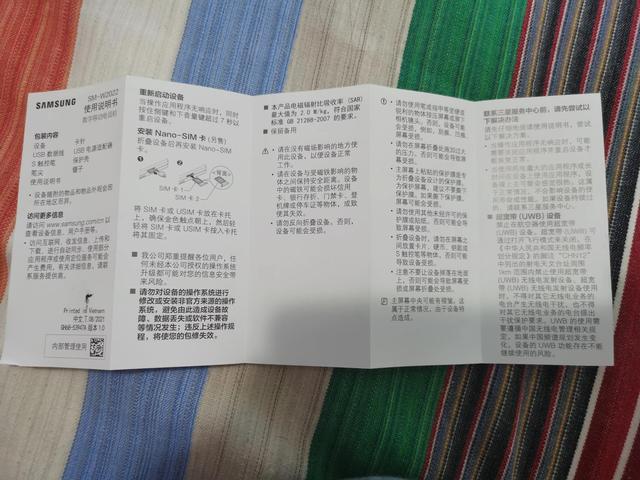 SAMSUNG
SM-W2022
使用说明书
数字移动电话机
包装内容
设备
卡针
USB 数据线
USB 电源适配器
S 触控笔
保护壳
笔尖
镊子
使用说明书
• 设备随附的物品和物品外观会因
所在地区而异。
访问更多信息
请访问 www.samsung.com 以
查看设备信息、用户手册等。
• 访问互联网、收发信息、上传和
下载、进行自动同步、使用部分
应用程序或使用定位服务可能会
产生费用。有关详细信息，请联
系服务提供商。
Printed in Vietnam
中文 版本 1.0
内部管理使用
重新启动设备
当操作应用程序无响应时，同时
按住侧键和下音量键超过 7 秒以
重启设备。
安装 Nano-SIM 卡 (另售)
折叠设备后再安装 Nano-SIM
卡。
1
2
(背面)
SIM 卡 1
SIM 卡 2
将 SIM 卡或 USIM 卡放在卡托
上，确保金色触点朝上，然后轻
轻将 SIM 卡或 USIM 卡按入卡托
将其固定。
■ 我公司郑重提醒各位用户，任
何未经本公司授权的操作系统
升级都可能对您的信息安全带
来风险。
■ 请勿对设备的操作系统进行
修改或安装非官方来源的操作
系统，避免由此造成设备故
障、数据丢失或软件不兼容
等情况发生；违反上述操作规
程，将使您的包修失效。
■ 本产品电磁辐射比吸收率 (SAR)
最大值为 2.0 W/kg, 符合国家
标准 GB 21288-2007 的要求。
■ 保留备用
• 请在没有磁场影响的地方使
用此设备，以便设备正常工
作。
• 请在设备与受磁铁影响的物
体之间保持安全距离。设备
中的磁铁可能会损坏信用
卡、银行存折、门禁卡、登
机牌或停车证等物体，或致
使其失效。
• 请勿向后折叠设备。否则，
设备可能会受损。
• 请勿使用笔或指甲等坚硬或
锐利的物体按压屏幕或前置
相机镜头。否则，设备可能
会受损，例如，刮痕、凹痕或
屏幕受损。
• 主屏幕折叠时请勿施加过大
的压力。否则可能会导致屏
幕受损。
• 主屏幕上粘贴的保护膜是专
为折叠设备设计的保护膜。
为保护屏幕，建议不要撕下
保护膜。如果撕下保护膜，
可能会导致屏幕受损。
• 请勿使用其他未经许可的保
护膜或贴纸。否则可能会导
致屏幕受损。
• 折叠设备时，请勿在屏幕之
间放置卡片、硬币、钥匙或
S 触控笔等物体。否则可能
导致屏幕受损。
• 注意不要让设备掉落在地面
上，否则可能会导致屏幕受
损或屏幕折叠处受损。
主屏幕中央可能有褶皱。这
属于正常情况，由于设备特
点造成。
联系三星服务中心前，请先尝试以
下解决办法
禁止在航空器使用超宽带
(UWB) 设备。超宽带 (UWB) 可
通过打开飞行模式来关闭。在
《中华人民共和国无线电频率
划分规定》的脚注 "CHN12"
中列出的射电天文台址周围
1km 范围内禁止使用超宽带
(UWB) 无线电发射设备。超宽
带 (UWB) 无线电发射设备使用
时，不得对其它无线电业务的电
台产生无线电干扰，也不得对
其它无线电业务的电台提出
干扰保护要求。UWB 的使用需
要遵循中国无线电管理相关规
定。如果中国频谱规划发生变
化，设备的 UWB 功能存在不能
继续使用的风险。